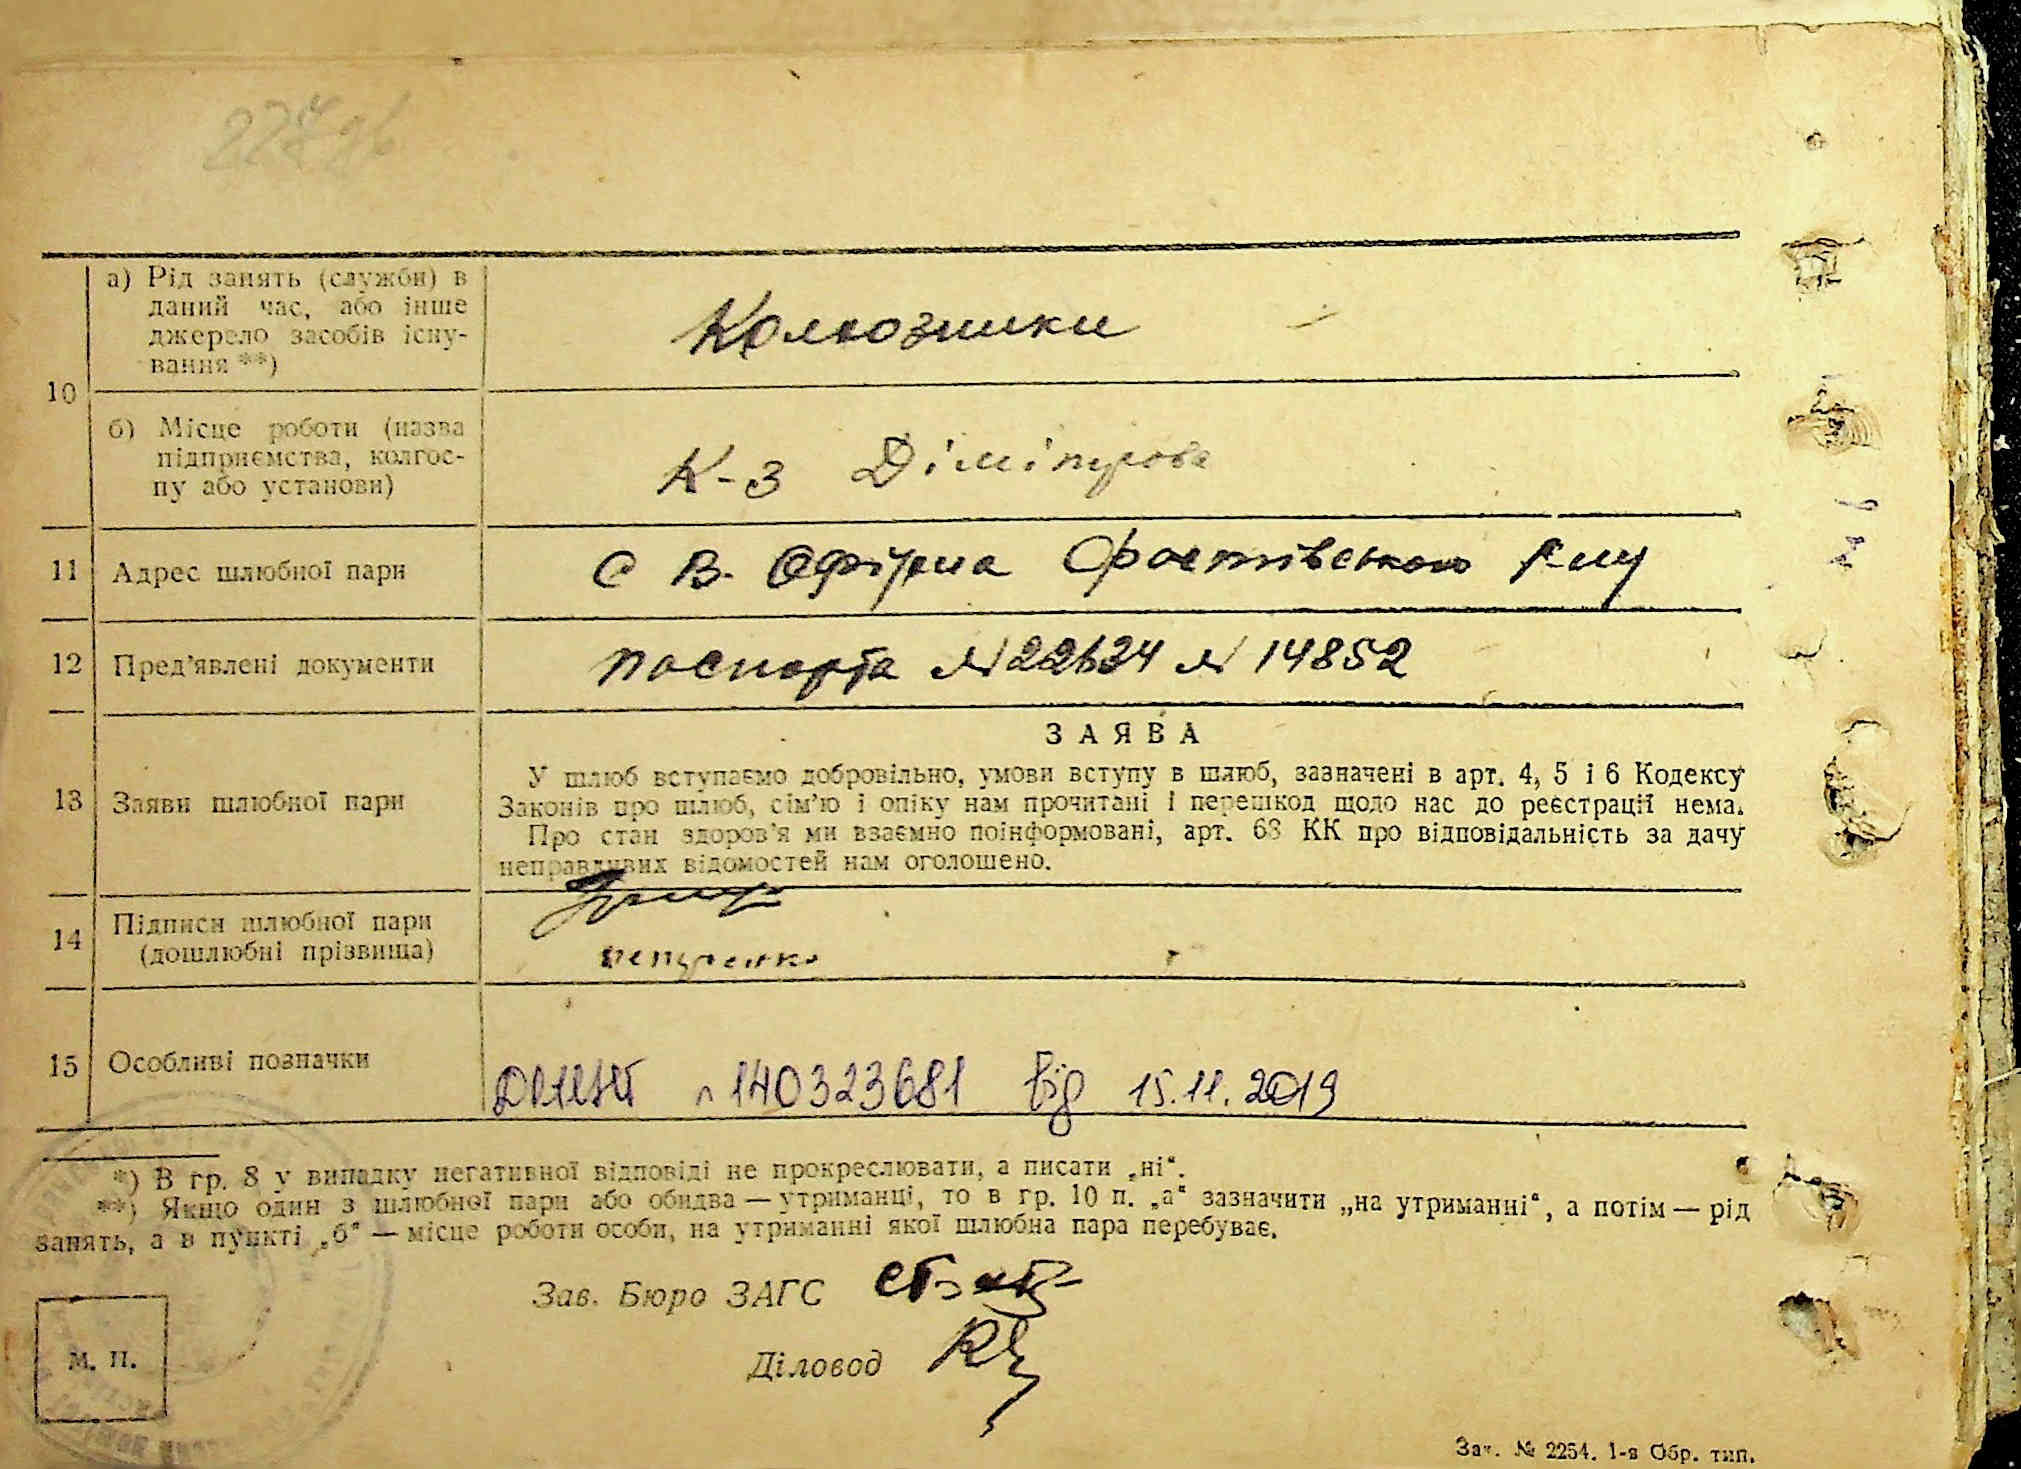 а) Рід занять (служби) в
даний час, або інше
джерело засобів існу-
вання **)
Колгозники
10
б) Місце роботи (назва
підприємства, колгос-
пу або установи)
К-з Дімітрова
11 Адрес шлюбної пари
с В. Офірна Фастівського р-ну
12 Пред'явлені документи
паспорта № 14852
ЗАЯВА
13 Заяви шлюбної пари
У шлюб вступаємо добровільно, умови вступу в шлюб, зазначені в арт. 4, 5 і 6 Кодексу
Законів про шлюб, сім'ю і опіку нам прочитані і перешкод щодо нас до реєстрації нема.
Про стан здоров'я ми взаємно поінформовані, арт. 68 КК про відповідальність за дачу
неправдивих відомостей нам оголошено.
14 Підписи шлюбної пари
(дошлюбні прізвища)
15 Особливі позначки
140323681 від 15.11.2019
*) В гр. 8 у випадку негативної відповіді не прокреслювати, а писати „ні“.
**) Якщо один з шлюбної пари або обидва — утриманці, то в гр. 10 п. „а“ зазначити „на утриманні“, а потім — рід
занять, а в пункті „б“ — місце роботи особи, на утриманні якої шлюбна пара перебуває.
Зав. Бюро ЗАГС
Діловод
М. П.
Зак. № 2254. 1-я Обр. тип.